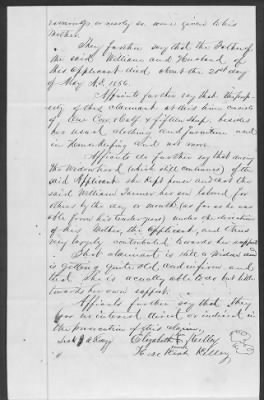 earnings or nearly so were given to his
Mother.
They further say that the Father of
the said William and Husband of
this applicant died about the 23rd day
of May A.D. 1856.
Affiants further say that the prop-
erty of this claimant at this time consists
of One Cow & Calf & fifteen Sheep besides
her usual clothing and furniture used
in Housekeeping and no more.
Affiants do further say that during
the Widowhood (which still continues) of the
said Applicant she kept house and that the
said William Farmer her son labored for
others by the day or month (as far as he was
able from his tender years) under the direction
of his Mother, the Applicant, and thus
very largely contributed towards her support
That claimant is still a Widow and
is getting quite old and infirm and
that she is actually able to do but little
towards her own support.
Affiants further say that they
have no interest direct or indirect in
the prosecution of this claim.
Elizabeth Kelley